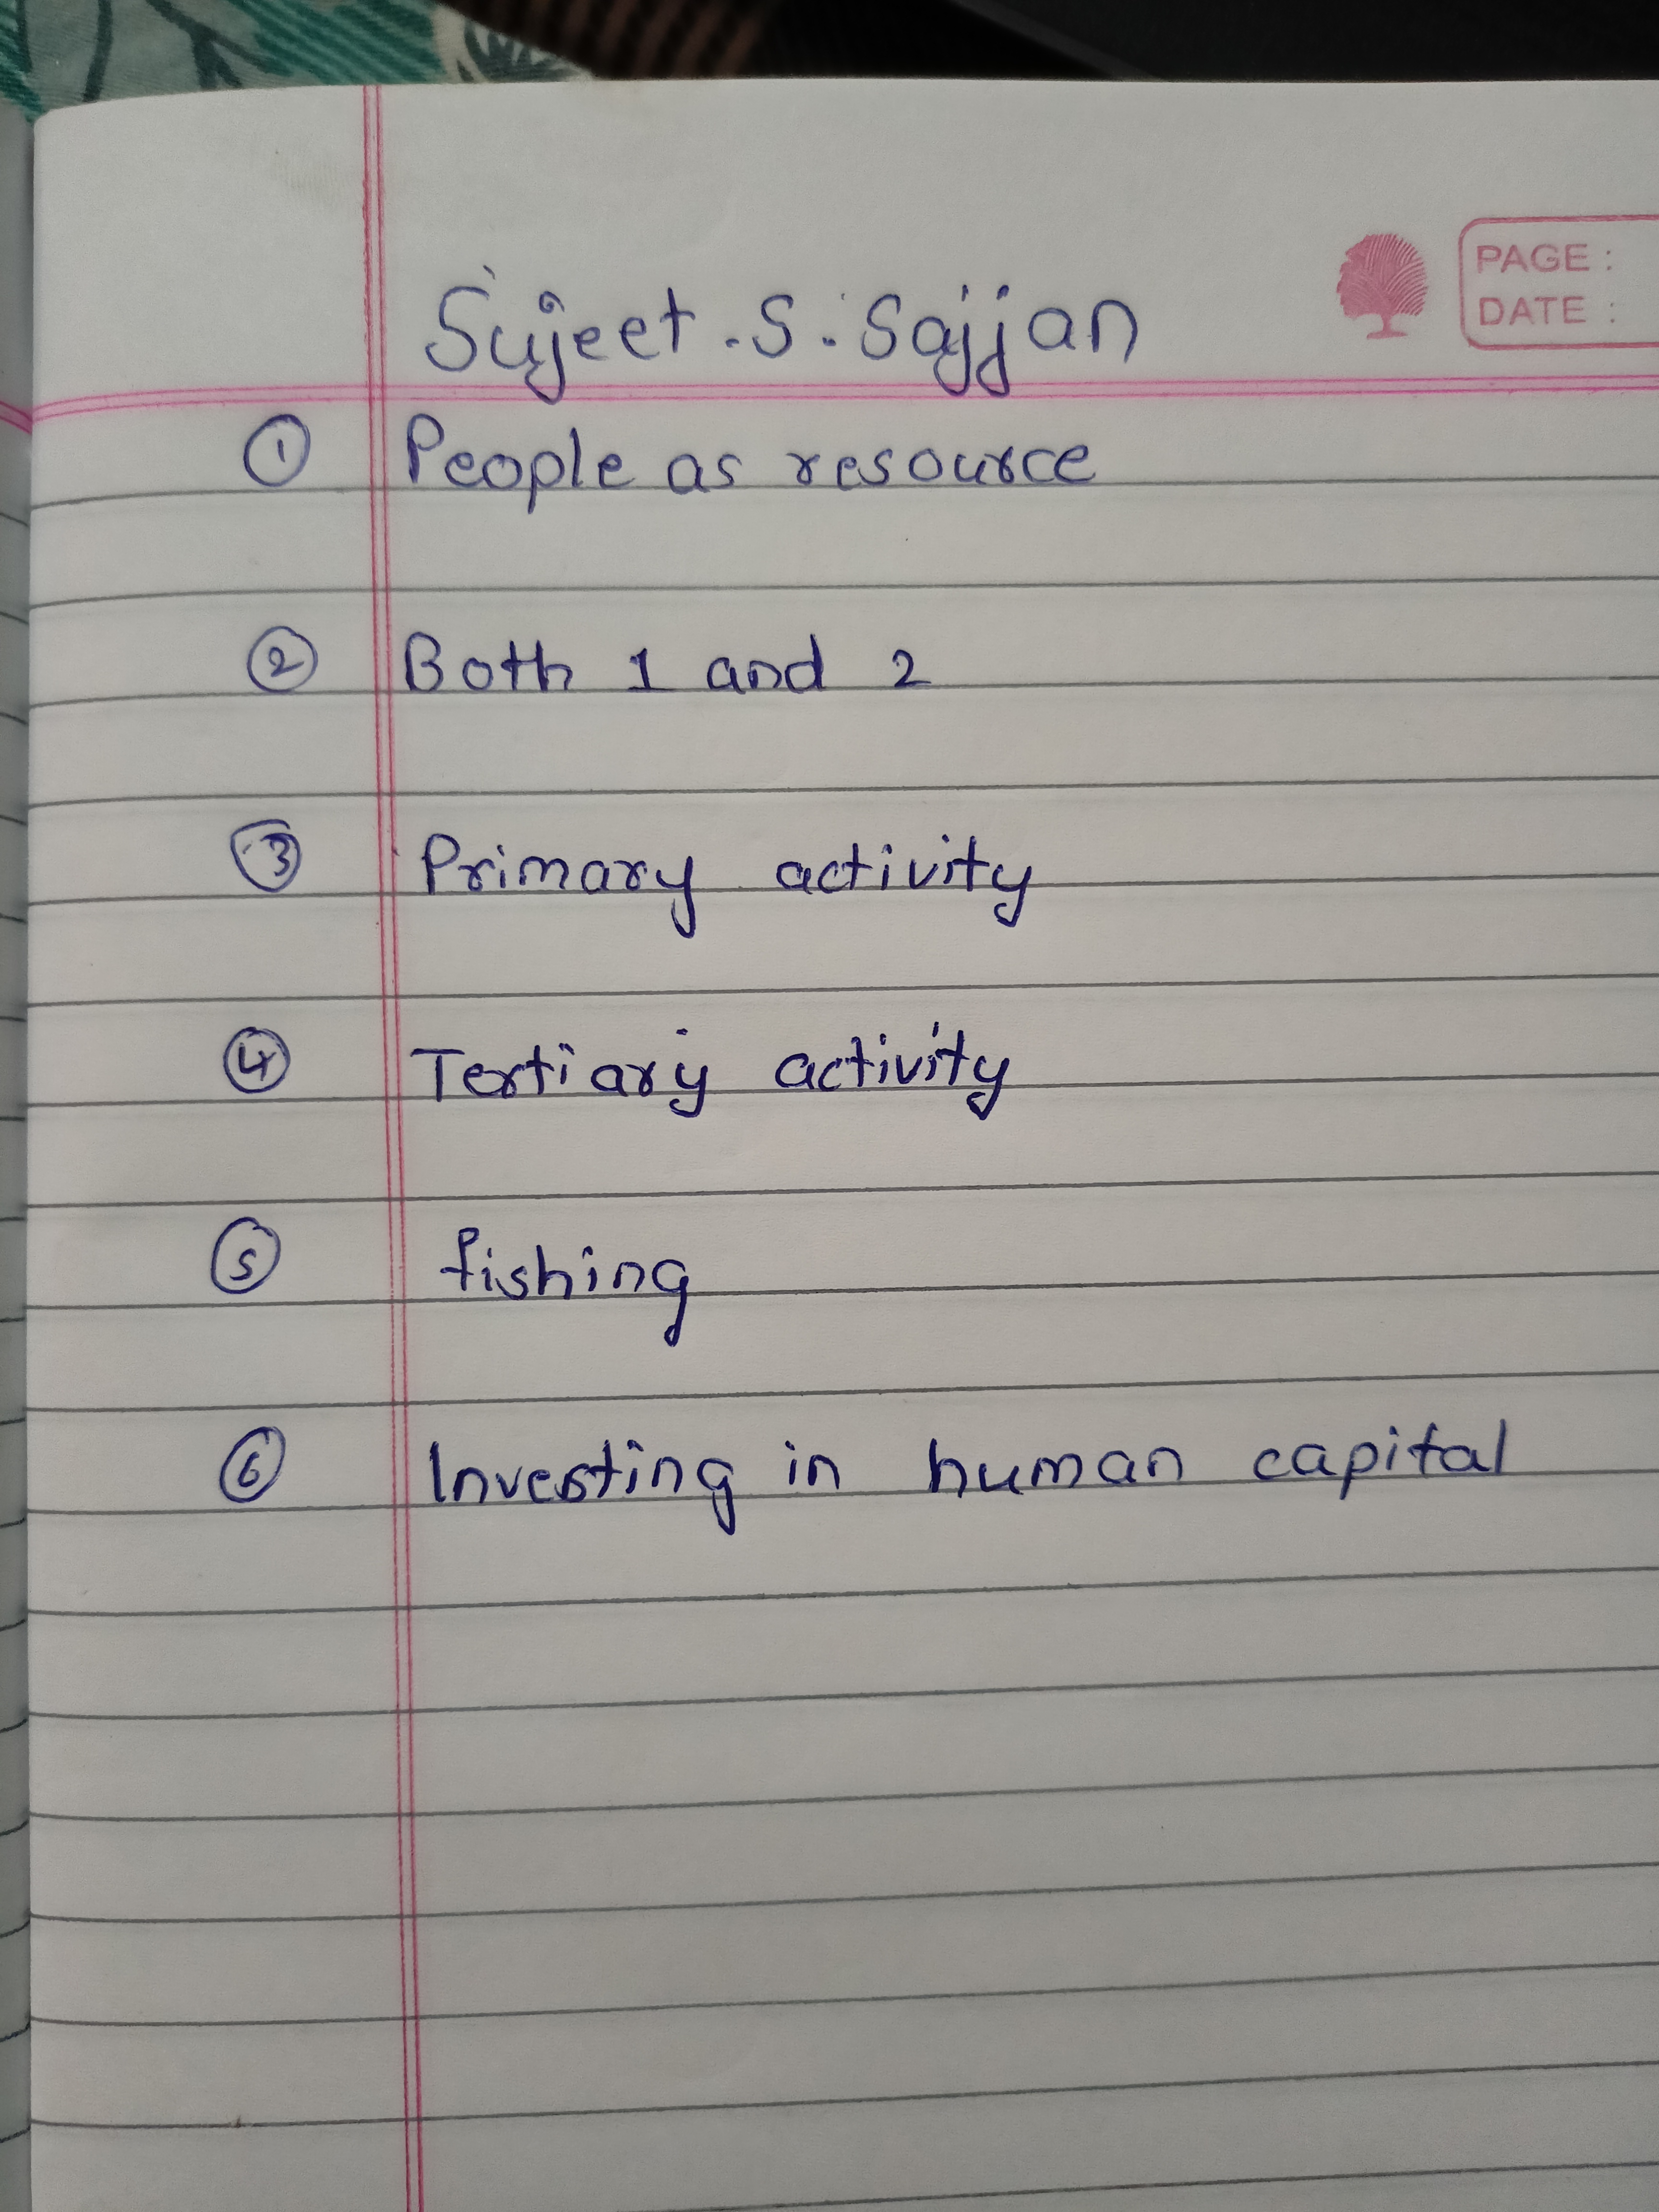 Sujeet .S. Sajjan
PAGE :
DATE :
① People as resource
② Both 1 and 2
③ Primary activity
④ Tertiary activity
⑤ fishing
⑥ Investing in human capital